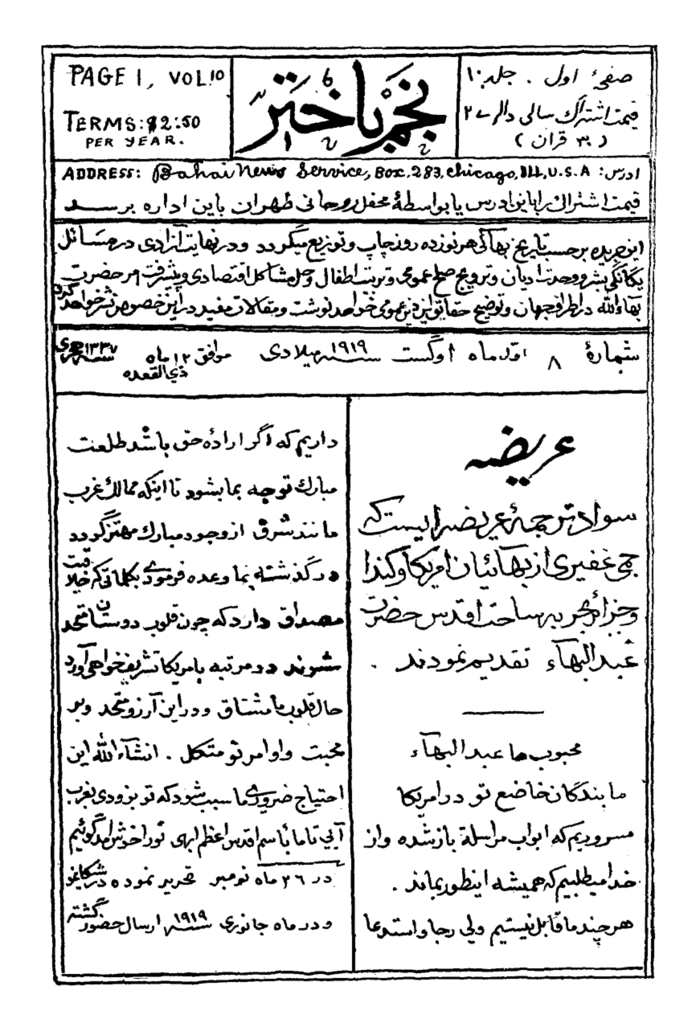 PAGE 1, VOL. 10
TERMS: $2.50
PER YEAR.
نجم باختر
صفحهٔ اول . جلد ۱۰
قیمت اشتراک سالی دالر ۲
( ۳۰ قران )
ADDRESS: Bahai News Service, Box, 283, Chicago, Ill, U.S.A ادرس:
قیمت اشتراک را باین ادرس یا بواسطهٔ محفل روحانی طهران باین اداره برسد
این جریده برحسب تاریخ بهائی هر نوزده روز چاپ و توزیع میگردد و در نهایت آزادی در مسائل
یگانگی بشر و وحدت ادیان و ترویج صلح عمومی و تربیت اطفال و حل مشاکل اقتصادی و پیشرفت امر حضرت
بهاءالله در اطراف جهان و توضیح حقایق این دین عمومی خواهد نوشت و مقالات مفید در این خصوص نشر خواهد کرد
شمارهٔ ۸ ماه اوگست سنه ۱۹۱۹ میلادی موافق ۱۲ ماه ذی القعده سنه ۱۳۳۷ هجری
عریضه
سواد ترجمهٔ عریضه ایست که
جمّ غفیری از بهائیان امریکا و کندا
و جزائر بحر به ساحت اقدس حضرت
عبدالبهآء تقدیم نمودند .
محبوب ما عبدالبهآء
ما بندگان خاضع تو در امریکا
مسروریم که ابواب مراسلة باز شده و از
خدا میطلبیم که همیشه اینطور بماند .
هر چند ما قابل نیستیم ولی رجا و استدعا
داریم که اگر ارادهٔ حق باشد طلعت
مبارک توجه بما بشود تا اینکه ممالک غرب
مانند شرق از وجود مبارک مهتز گردد
در گذشته بما وعده فرمودی بکلماتی که خلاقیت
مصداق دارد که چون قلوب دوستان متحد
شوند دو مرتبه بامریکا تشریف خواهی آورد
حال قلوب ما مشتاق و در این آرزو متحد و بر
محبت و اوامر تو متکل . انشآءالله این
احتیاج ضروری ما سبب شود که تو بزودی بغرب
آیی تا ما باسم اقدس اعظم ابهی تو را خوش آمد گوئیم
در ۲۶ ماه نومبر تحریر نموده در شکاغو
و در ماه جانوری سنه ۱۹۱۹ ارسال حضور گشته